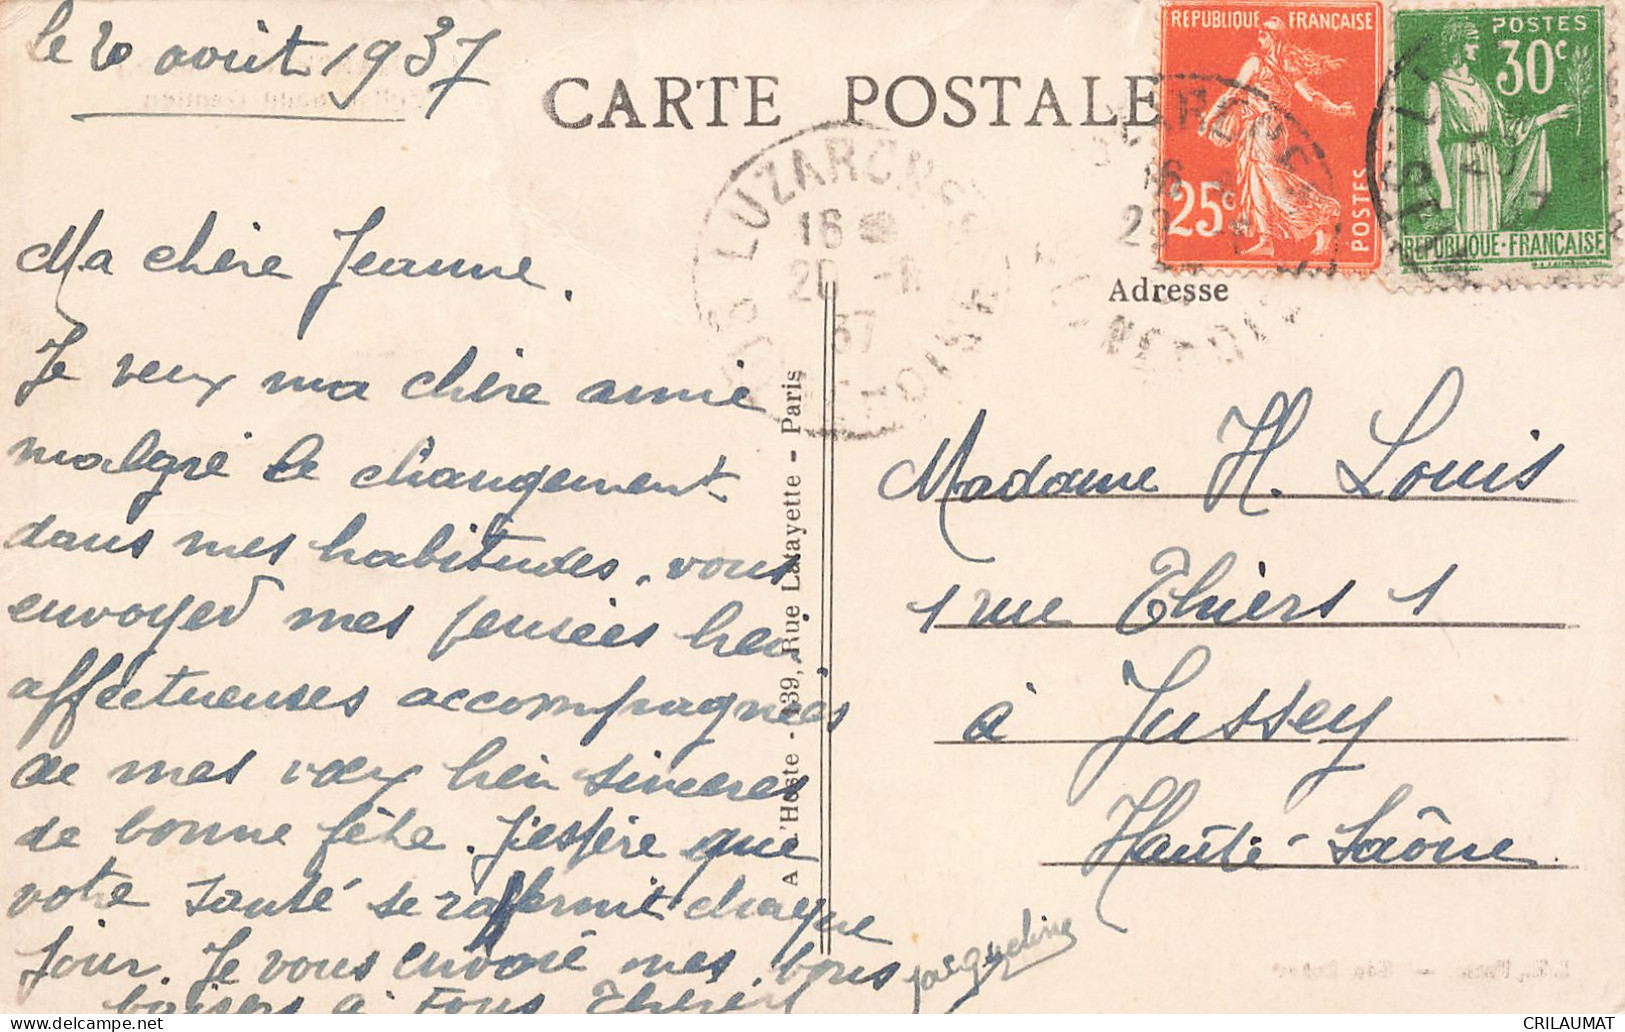 le 20 août 1937
CARTE POSTALE
REPUBLIQUE FRANÇAISE
25c
POSTES
POSTES
30c
REPUBLIQUE·FRANÇAISE
LUZARCHES
16
20 -8
37
Sne-ET-OISE
Ma chère Jeanne.
Je veux ma chère amie
malgré le changement
dans mes habitudes, vous
envoyer mes pensées bien
affectueuses accompagnées
de mes vœux bien sincères
de bonne fête. J'espère que
votre santé se raffermit chaque
jour. Je vous envoie mes bons
baisers à Tous
Jacqueline
A L'Hoste - 139, Rue Lafayette - Paris
Adresse
Madame H. Louis
1 rue Thiers 1
à Jussey
Haute-Saône
CRILAUMAT